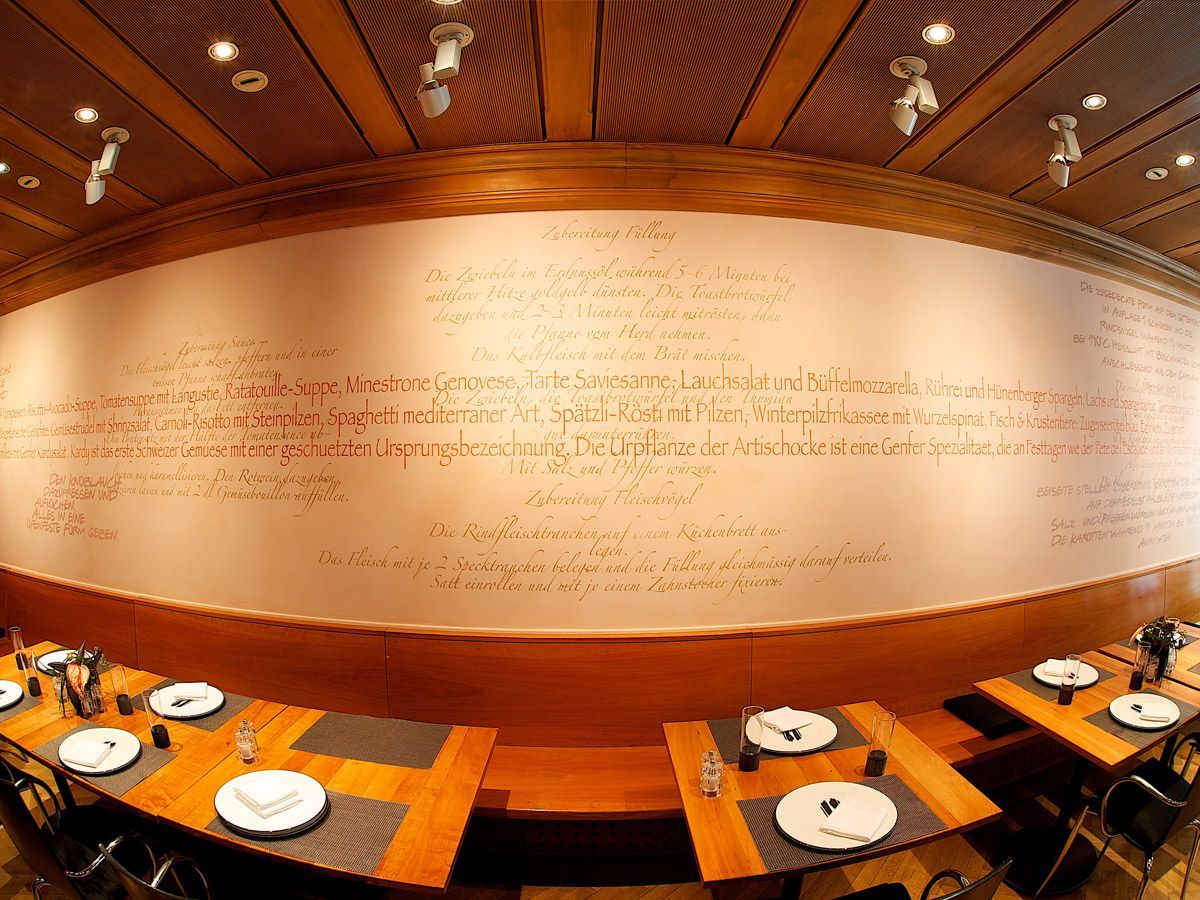 Zubereitung Füllung
Die Zwiebeln im Erdnussöl während 5-6 Minuten bei
mittlerer Hitze goldgelb dünsten. Die Toastbrotwürfel
dazugeben und 2-3 Minuten leicht mitrösten, dann
die Pfanne vom Herd nehmen.
Das Kalbfleisch mit dem Brät mischen.
Die Zwiebeln, die Toastbrotwürfel und den Thymian
gut darunterrühren.
Mit Salz und Pfeffer würzen.
Zubereitung Fleischvögel
Die Rindfleischtranchen auf einem Küchenbrett aus-
legen.
Das Fleisch mit je 2 Specktranchen belegen und die Füllung gleichmässig darauf verteilen.
Satt einrollen und mit je einem Zahnstocher fixieren.
Zubereitung Sauce
Die Fleischvögel leicht salzen, pfeffern und in einer
heissen Pfanne scharf anbraten.
entfernen.
mit der Hälfte der Tomatensauce ab-
löschen und karamellisieren. Den Rotwein dazugeben,
lassen und mit 2 dl Gemüsebouillon auffüllen.
Risotto-Avocado-Suppe, Tomatensuppe mit Langustie, Ratatouille-Suppe, Minestrone Genovese, Tarte Saviesanne, Lauchsalat und Büffelmozzarella, Rührei und Hünenberger Spargeln, Lachs und
Gerichte: Gemüsestrudel mit Sbrinzsalat, Carnoli-Risotto mit Steinpilzen, Spaghetti mediterraner Art, Spätzli-Rösti mit Pilzen, Winterpilzfrikassee mit Wurzelspinat, Fisch & Krustentiere: Zugerseerötel blau,
mit Genfer Kardysalat. Kardy ist das erste Schweizer Gemüse mit einer geschuetzten Ursprungsbezeichnung. Die Urpflanze der Artischocke ist eine Genfer Spezialitaet, die an Festtagen wie der Fête de l'Escalade
DEN KNOBLAUCH
DAZUPRESSEN UND
AUFKOCHEN.
ALLES IN EINE
OFENFESTE FORM GEBEN.
DIE ZUGEDECKTE FORM AUF DEN
BEISEITE STELLEN.
SALZ UND PFEFFER WÜRZEN
DIE KAROTTEN WÄHREND